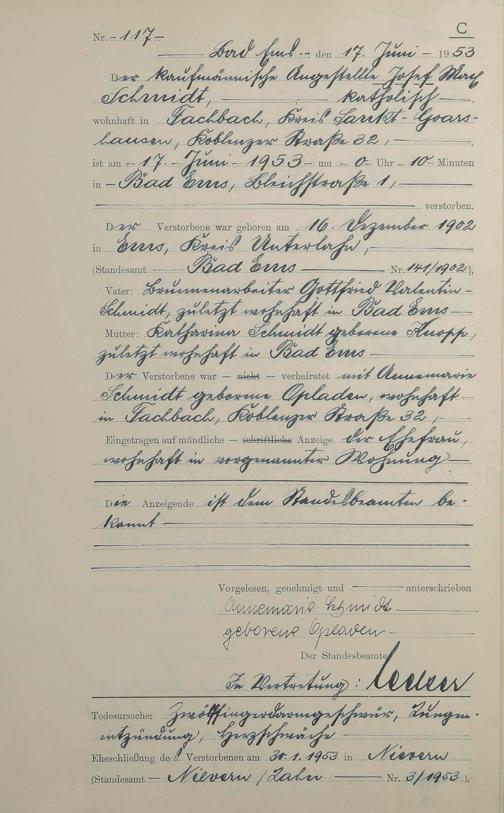 C
Nr. 117
Bad Ems, den 17. Juni 1953
Der kaufmännische Angestellte Josef
Schmidt, katholisch
wohnhaft in Fachbach, Kreis Sankt-Goars-
hausen, Koblenzer Straße 32,
ist am 17. Juni 1953 um 0 Uhr 10 Minuten
in Bad Ems, Bleichstraße 1,
verstorben.
Der Verstorbene war geboren am 16. Dezember 1902
in Ems, Kreis Unterlahn,
(Standesamt Bad Ems Nr. 141/1902),
Vater: Brunnenarbeiter Gottfried Valentin
Schmidt, zuletzt wohnhaft in Bad Ems
Mutter: Katharina Schmidt geborene Knopp,
zuletzt wohnhaft in Bad Ems
Der Verstorbene war — nicht — verheiratet mit Annemarie
Schmidt geborene Opladen, wohnhaft
in Fachbach, Koblenzer Straße 32,
Eingetragen auf mündliche — schriftliche Anzeige der Ehefrau,
wohnhaft in vorgenannter Wohnung
Die Anzeigende ist dem Standesbeamten be-
kannt
Vorgelesen, genehmigt und unterschrieben
Annemarie Schmidt
geborene Opladen
Der Standesbeamte
In Vertretung:
Todesursache: Zwölffingerdarmgeschwür, Lungen-
entzündung, Herzschwäche
Eheschließung des Verstorbenen am 30.1.1953 in Nievern
(Standesamt Nievern/Lahn Nr. 3/1953).